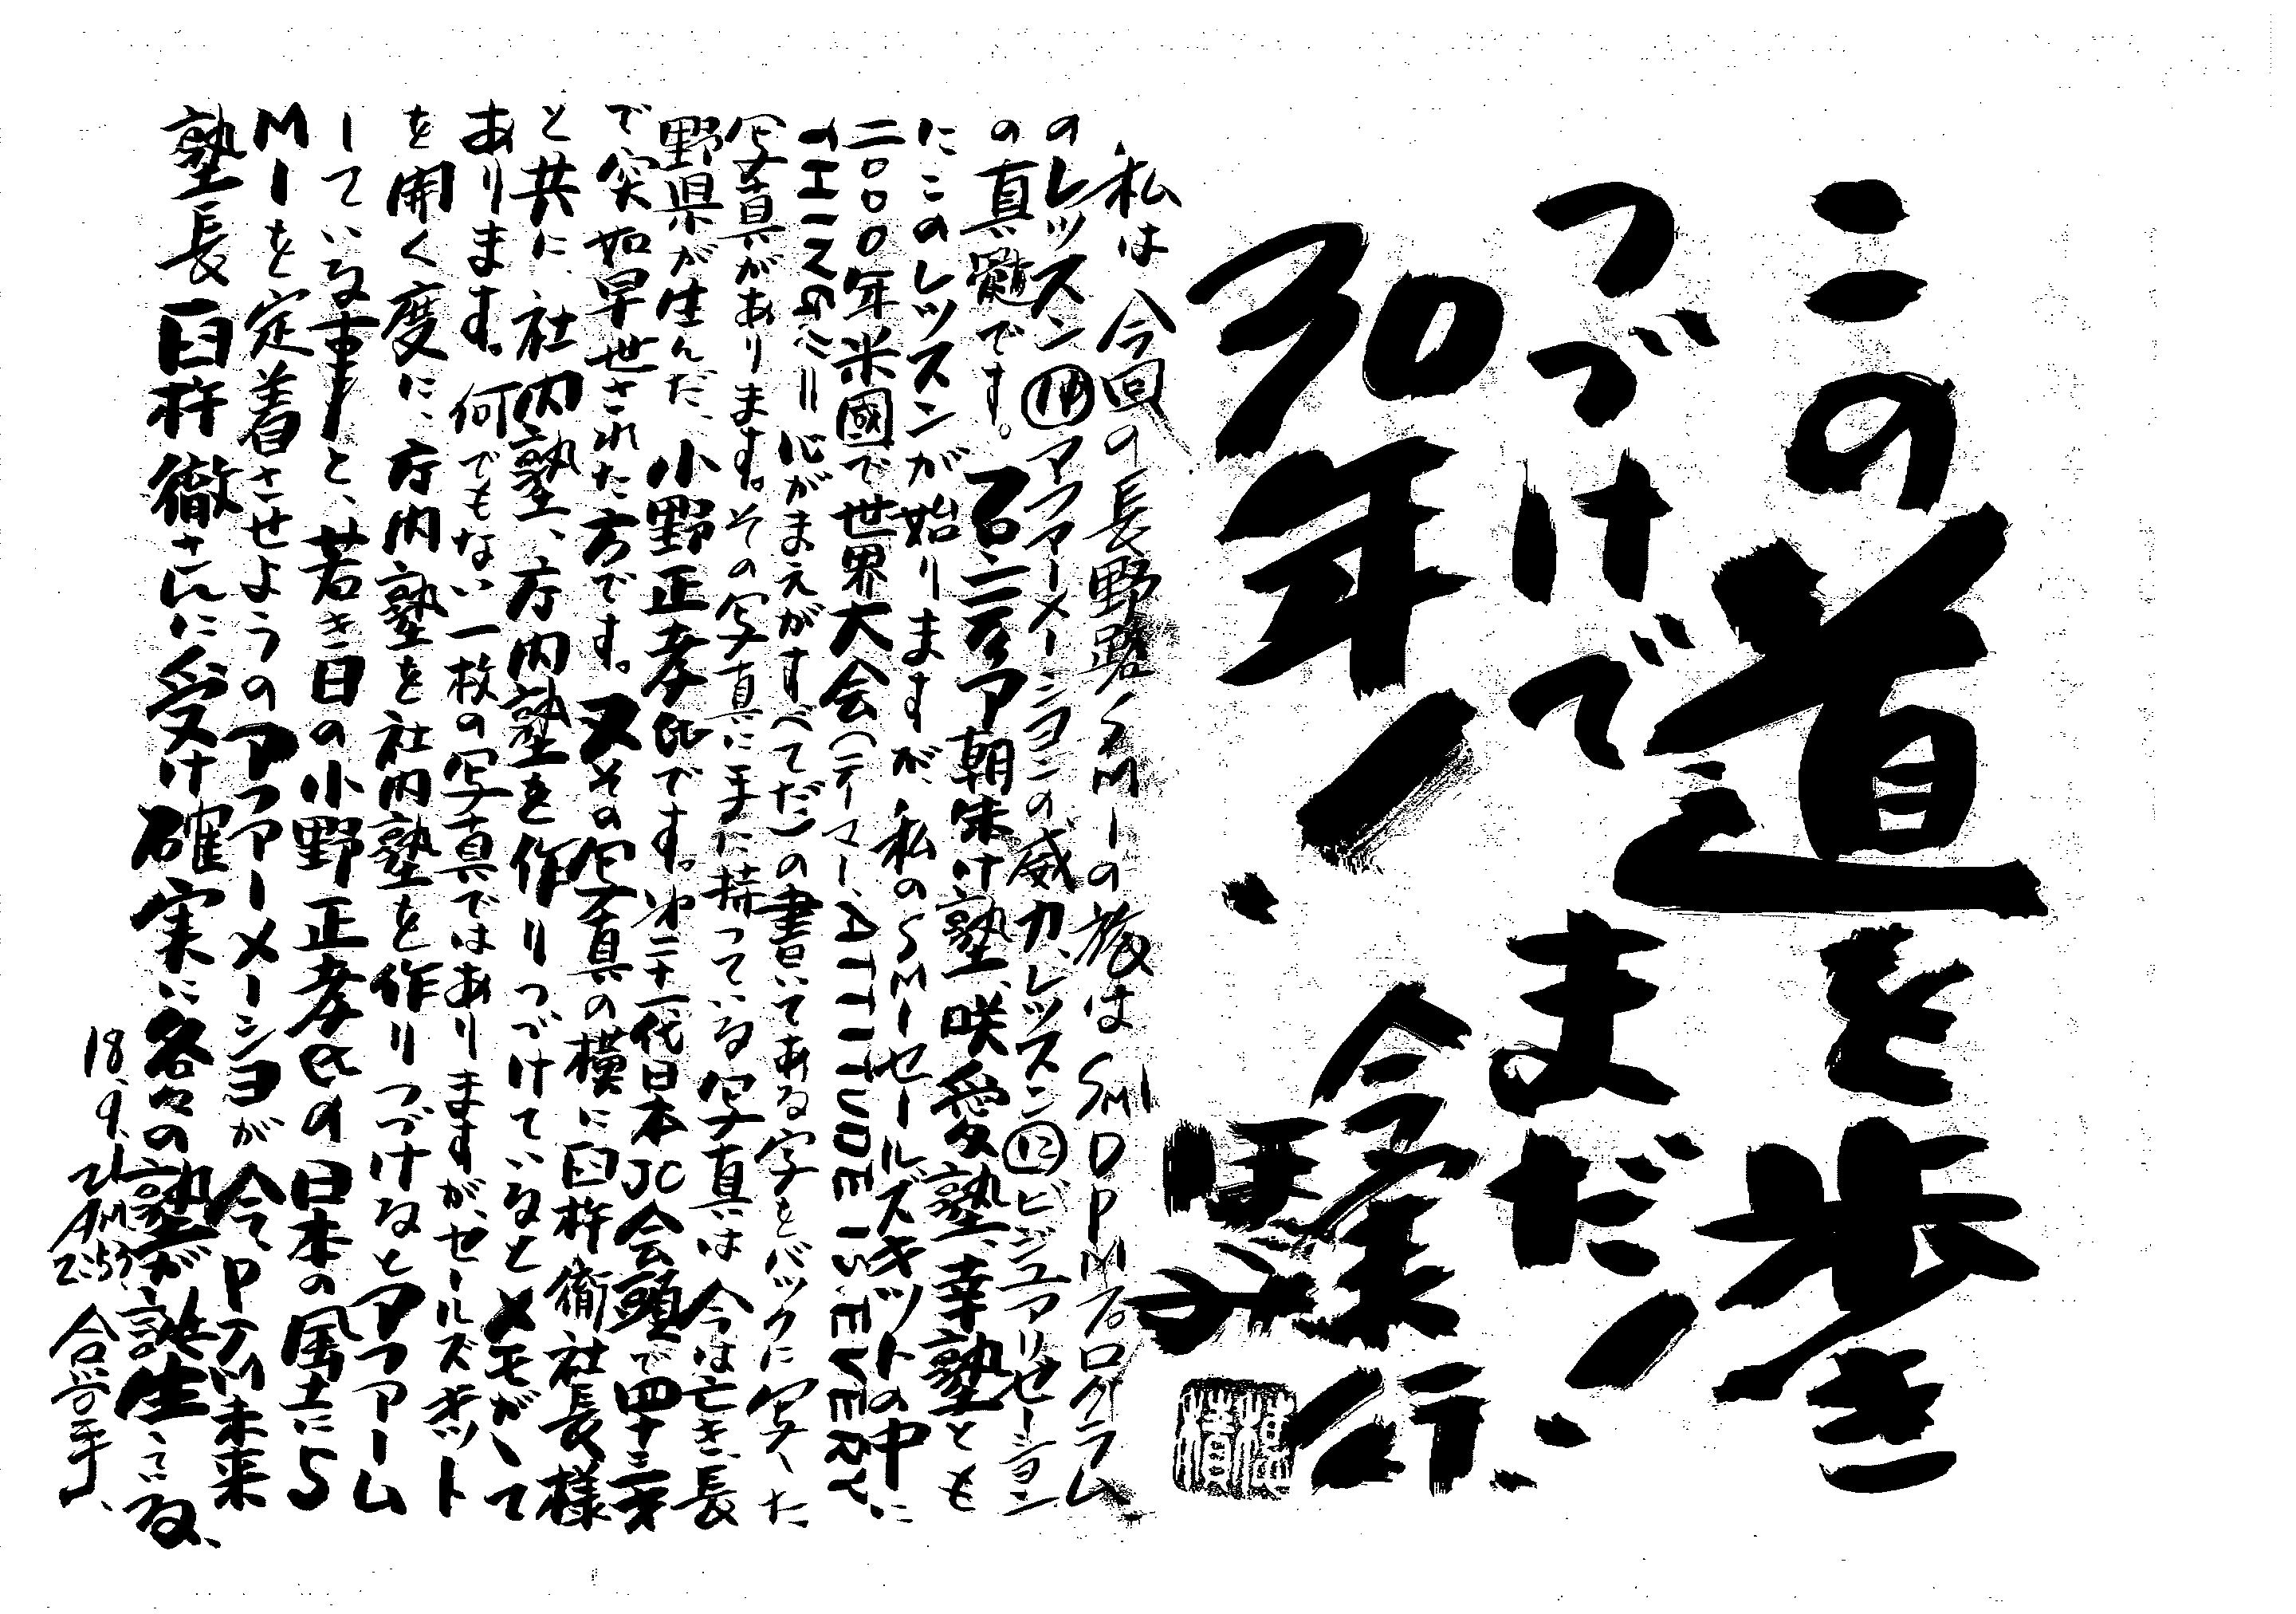 この道を歩き
つづけて まだ!
30年! 今実行
私は今回の長野路SMIの旅はSMIDPMプロクラム
のレッスン⑩アファーメーションの威力、レッスン⑫ビジュアリゼーション
の真髄です。 朝焼け塾、咲愛塾、幸塾とも
にこのレッスンが始りますが、私のSMIセールズキットの中に
二〇〇〇年米國で世界大会(テーマー、ATTITUDE is EVERY
THING 心がまえがすべてだ)の書いてある字をバックに写った
写真があります。その写真に手に持っている写真は今は亡き、長
野県が生んだ、小野正孝氏です。第三十一代日本JC会頭で四十三才
で突如早世された方です。又その写真の横に臼杵衛社長様
と共に、社内塾、庁内塾を作りつづけているとメモがして
あります。何でもない一枚の写真ではありますが、セールズキット
を開く度に、庁内塾を社内塾を作りつづけるとアファーム
している事と、若き日の小野正孝氏の日本の風土にS
MIを定着させようのアファーメーションが今DPM未来
塾長臼杵徹さんに受け確実に各々の塾が誕生している、
18.9.21 AM2:53 合掌